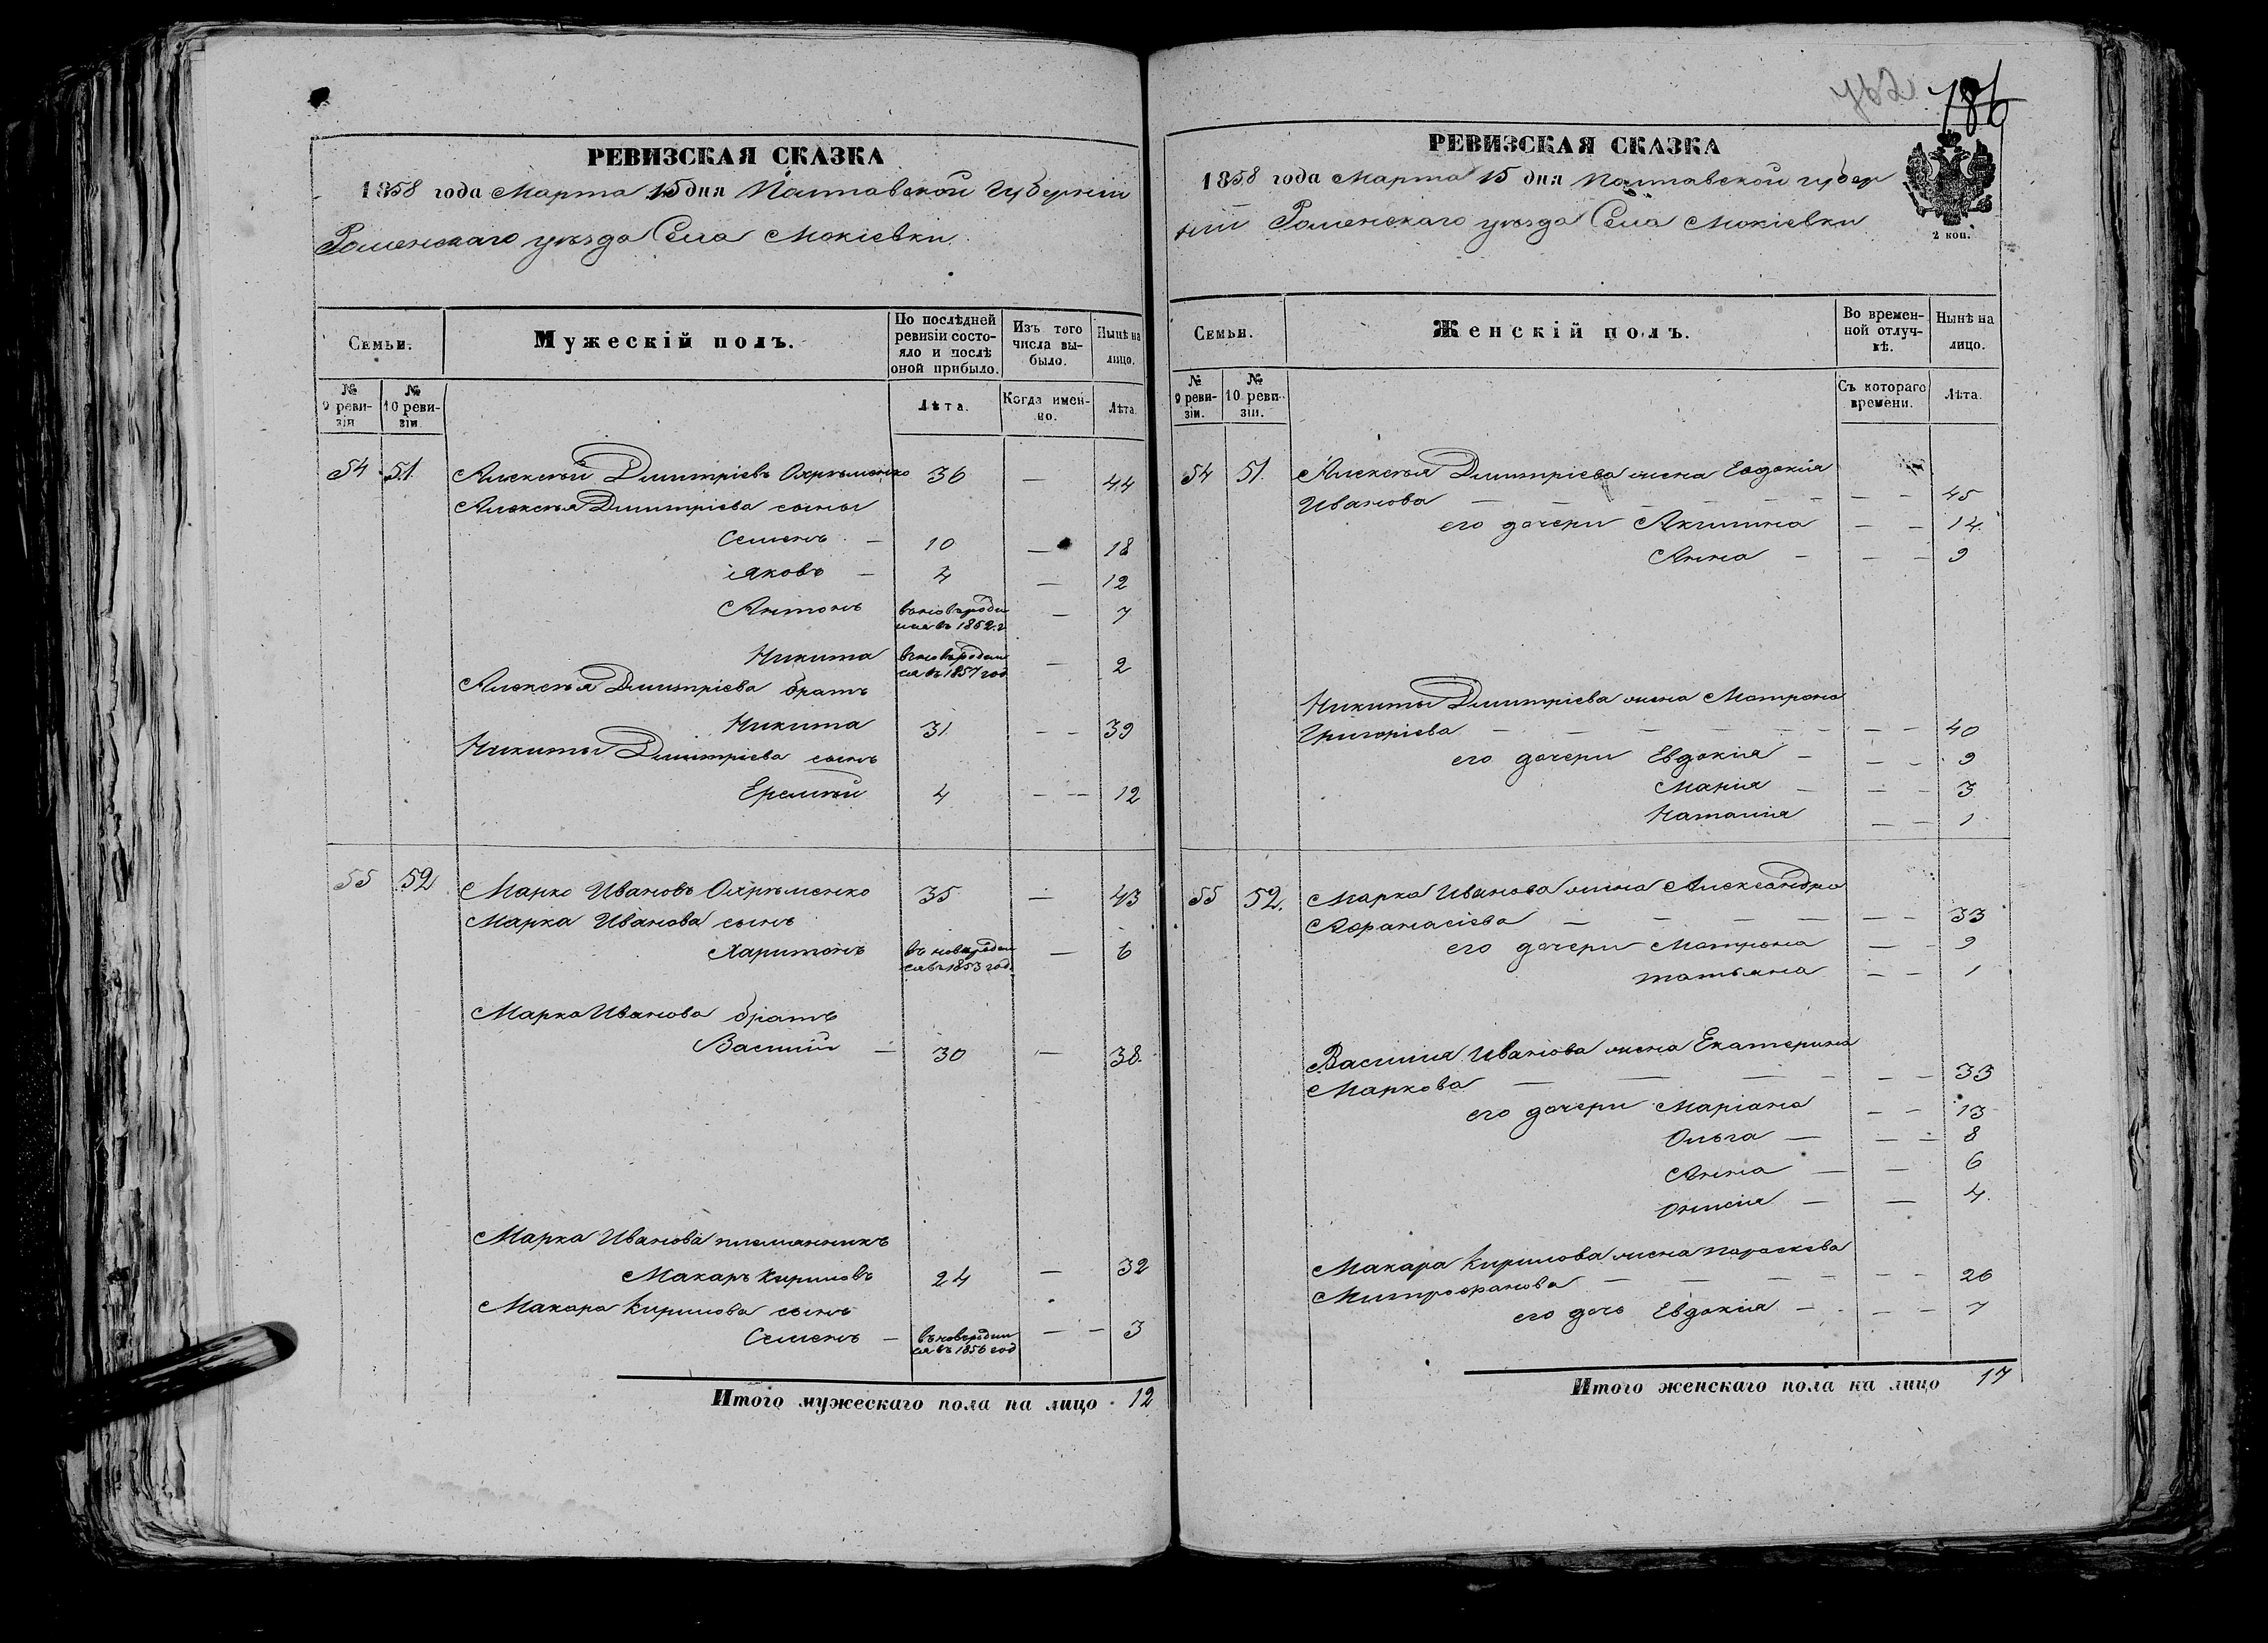 РЕВИЗСКАЯ СКАЗКА
1858 года Марта 15 дня Полтавской Губерніи
Роменскаго уѣзда Села Мокіевки.
Семьи.
Мужескій полъ.
По послѣдней ревизіи состояло и послѣ оной прибыло.
Изъ того числа выбыло.
Нынѣ на лицо.
№ 9 ревизіи
№ 10 ревизіи
Лѣта.
Когда именно.
Лѣта
54 51. Алексѣй Дмитріевъ Охрѣменко 36 — 44
Алексѣя Дмитріева сыны
Семенъ — 10 — 18
Яковъ — 4 — 12
Антонъ вновь роди
лся въ 1852 г — 7
Никита вновь родил
ся въ 1857 год — 2
Алексѣя Дмитріева братъ
Никита 31 — — 39
Никиты Дмитріева сынъ
Еремѣй 4 — — 12
55 52 Марко Ивановъ Охрѣменко 35 — 43
Марка Иванова сынъ
Харитонъ въ новь родил
ся въ 1853 год. — 6
Марка Иванова братъ
Василій — 30 — 38.
Марка Иванова племянникъ
Макаръ Кириловъ 24 — 32
Макара Кирилова сынъ
Семенъ — въ новь родил
ся въ 1856 год — — 3
Итого мужескаго пола на лицо 12
186
РЕВИЗСКАЯ СКАЗКА
1858 года Марта 15 дня Полтавской Губер
ніи Роменскаго уѣзда Села Мокіевки
2 коп.
Семьи.
Женскій полъ.
Во временной отлучкѣ.
Нынѣ на лицо.
№ 9 ревизіи.
№ 10 ревизіи.
Съ котораго времени.
Лѣта.
54 51. Алексѣя Дмитріева жена Евдокія
Иванова — — — — — — — 45
его дочери Акилина — — 14.
Анна — — — 9
Никиты Дмитріева жена Матрона
Григоріева — — — — — — — 40
его дочери Евдокія — — — 9
Марія — — — 3
Наталія — — 1
55 52. Марка Иванова жена Александра
Афанасіева — — — — — — 33
его дочери Матрона — — 9
Татьяна — — 1
Василія Иванова жена Екатерина
Маркова — — — — — — 33
его дочери Маріана — — 13
Ольга — — — 8
Анна — — 6
Онисія — — 4.
Макара Кирилова жена Параскева
Митрофанова — — — — — — 26
его дочь Евдокія — — — 7
Итого женскаго пола на лицо 17